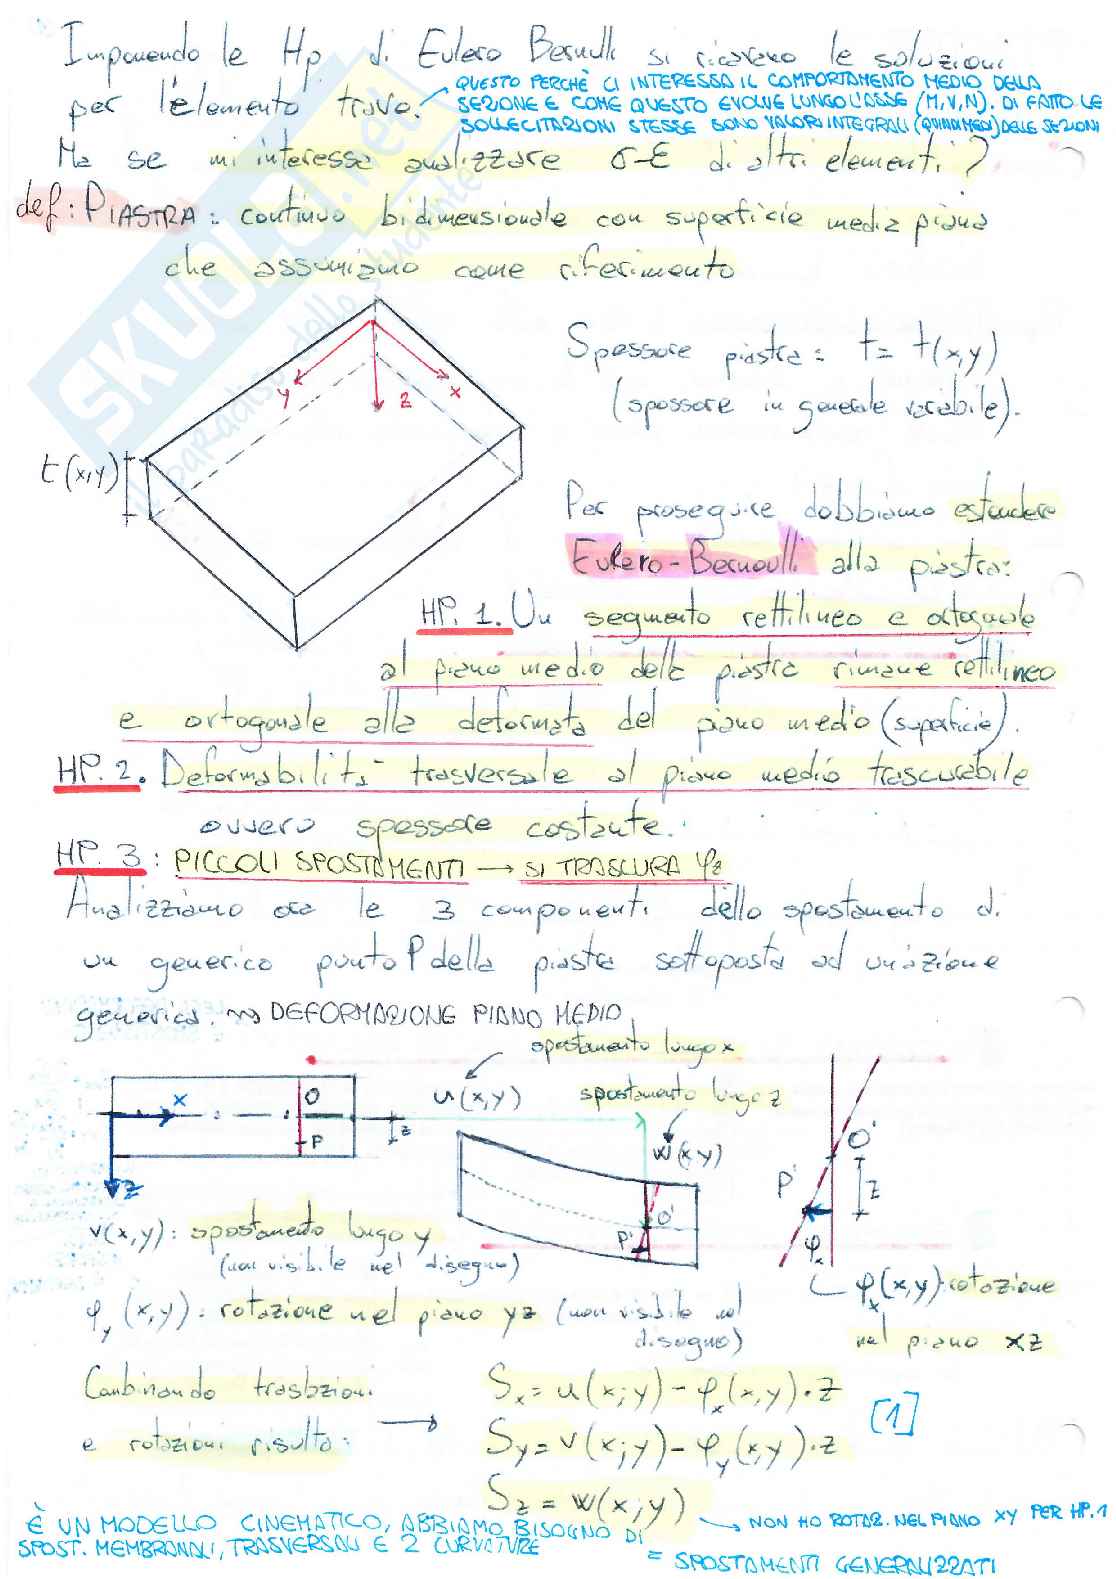 Imponendo le Hp di Eulero Bernulli si ricavano le soluzioni
per l'elemento trave.
QUESTO PERCHÈ CI INTERESSA IL COMPORTAMENTO MEDIO DELLA
SEZIONE E COME QUESTO EVOLVE LUNGO L'ASSE (M,V,N). DI FATTO LE
SOLLECITAZIONI STESSE SONO VALORI INTEGRALI (QUINDI MEDI) DELLE SEZIONI
Ma se mi interessa analizzare σ-ε di altri elementi?
def: PIASTRA: continuo bidimensionale con superficie media piana
che assumiamo come riferimento
SKUOLA.net
il paradiso dello studente
y
x
z
t(x,y)
Spessore piastra: t = t(x,y)
(spessore in generale variabile).
Per proseguire dobbiamo estendere
Eulero-Bernoulli alla piastra:
HP. 1. Un segmento rettilineo e ortogonale
al piano medio della piastra rimane rettilineo
e ortogonale alla deformata del piano medio (superficie).
HP. 2. Deformabilità trasversale al piano medio trascurabile
ovvero spessore costante.
HP. 3: PICCOLI SPOSTAMENTI → SI TRASCURA φz
Analizziamo ora le 3 componenti dello spostamento di
un generico punto P della piastra sottoposta ad un'azione
generica. ⇝ DEFORMAZIONE PIANO MEDIO
spostamento lungo x
u(x,y)
spostamento lungo z
w(x,y)
x
O
P
z
z
O'
P'
O'
P'
z
φx
v(x,y): spostamento lungo y
(non visibile nel disegno)
φx(x,y): rotazione
nel piano xz
φy(x,y): rotazione nel piano yz (non visibile nel
disegno)
Combinando traslazioni
e rotazioni risulta: →
Sx = u(x;y) - φx(x,y)·z
Sy = v(x;y) - φy(x,y)·z
Sz = w(x;y)
[1]
→ NON HO ROTAZ. NEL PIANO XY PER HP.1
È UN MODELLO CINEMATICO, ABBIAMO BISOGNO DI
SPOST. MEMBRANALI, TRASVERSALI E 2 CURVATURE
= SPOSTAMENTI GENERALIZZATI